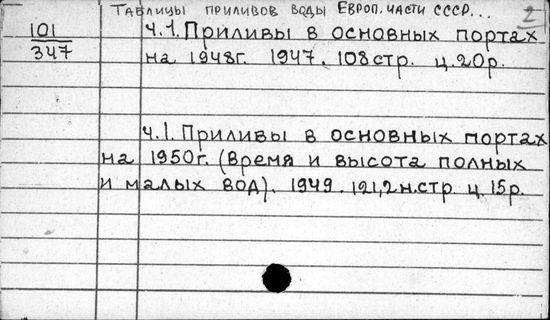 Таблицы приливов воды Европ. части СССР... 2
101
347
ч.1. Приливы в основных портах
на 1948г. 1947. 108стр. ц.20р.
ч.1. Приливы в основных портах
на 1950г. (Время и высота полных
и малых вод). 1949. 121,2н.стр. ц. 15р.